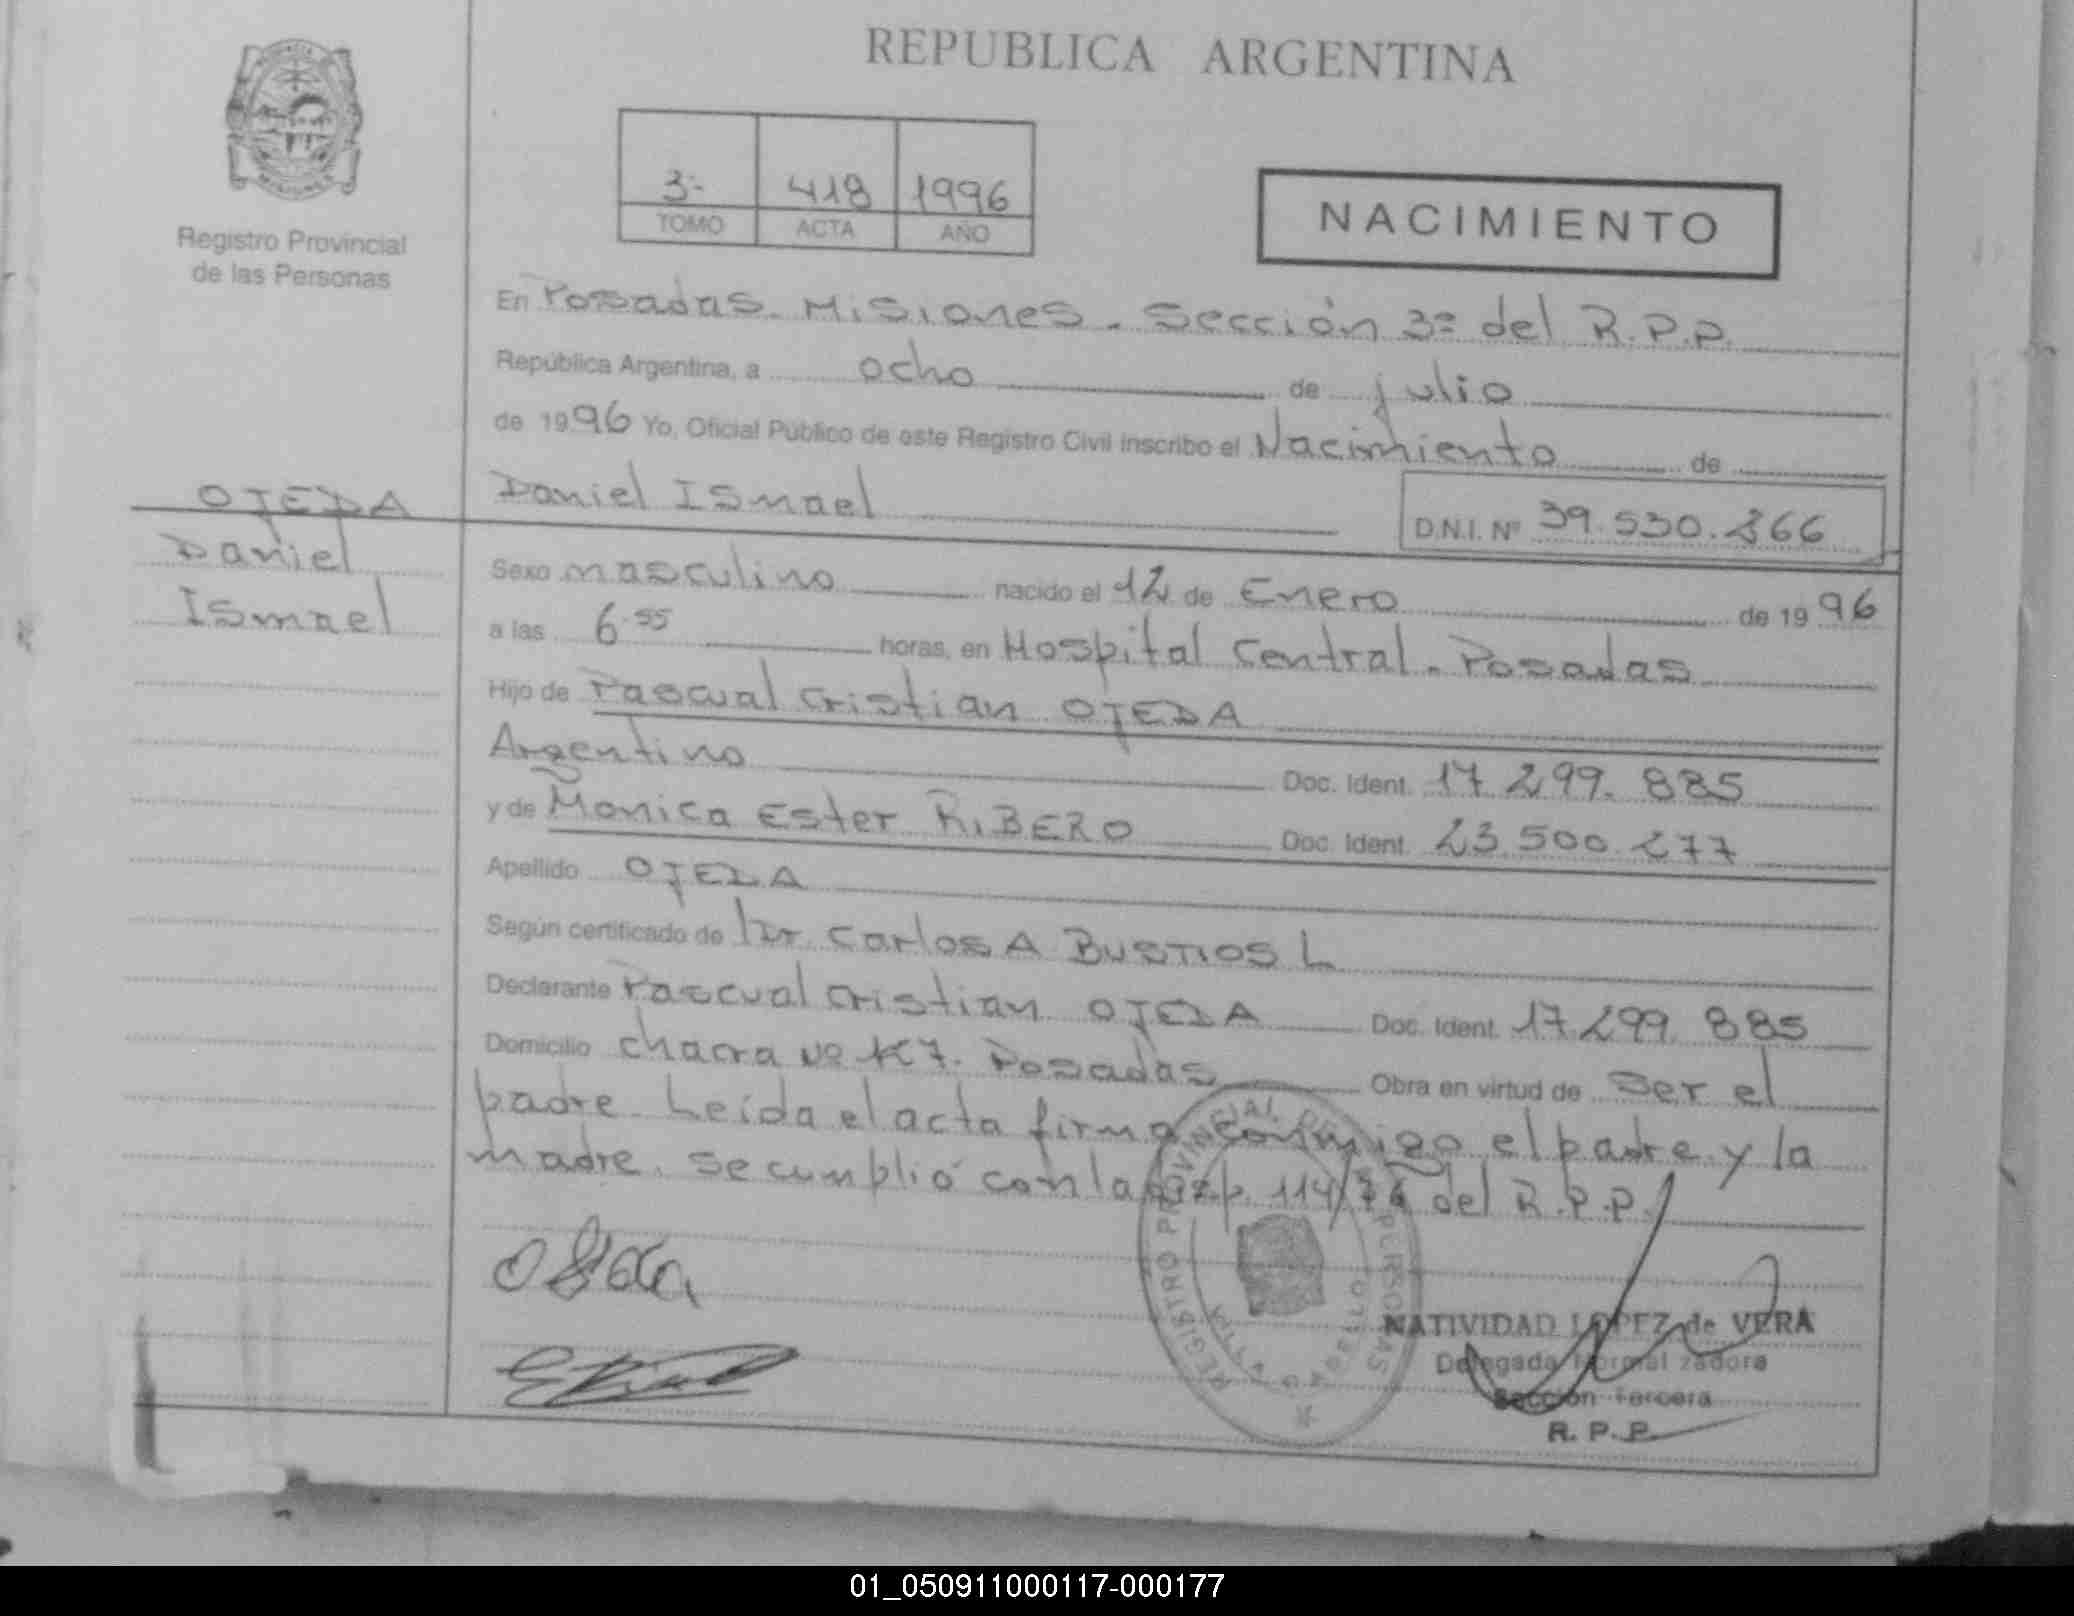 REPUBLICA ARGENTINA
Registro Provincial
de las Personas
3- 418 1996
TOMO ACTA AÑO
NACIMIENTO
En Posadas. Misiones. Sección 3ª del R.P.P.
República Argentina, a ocho de julio
de 1996 Yo, Oficial Público de este Registro Civil inscribo el Nacimiento de
Daniel Ismael
D.N.I. Nº 39.530.266
OJEDA
Daniel
Ismael
Sexo masculino nacido el 12 de Enero de 1996
a las 6.55 horas, en Hospital Central. Posadas
Hijo de Pascual Cristian OJEDA
Argentino Doc. Ident. 17 299. 885
y de Monica Ester RIBERO Doc. Ident. 23.500.277
Apellido OJEDA
Según certificado de Dr. Carlos A BUSTIOS L
Declarante Pascual Cristian OJEDA Doc. Ident. 17.299. 885
Domicilio chacra Nº 7. Posadas Obra en virtud de ser el
padre. Leída el acta firma conmigo el padre y la
madre. se cumplió con la 114/76 del R.P.P.
REGISTRO PROVINCIAL DE PERSONAS
NATIVIDAD LOPEZ de VERA
Delegada Normalizadora
Sección Tercera
R. P. P.
01_050911000117-000177